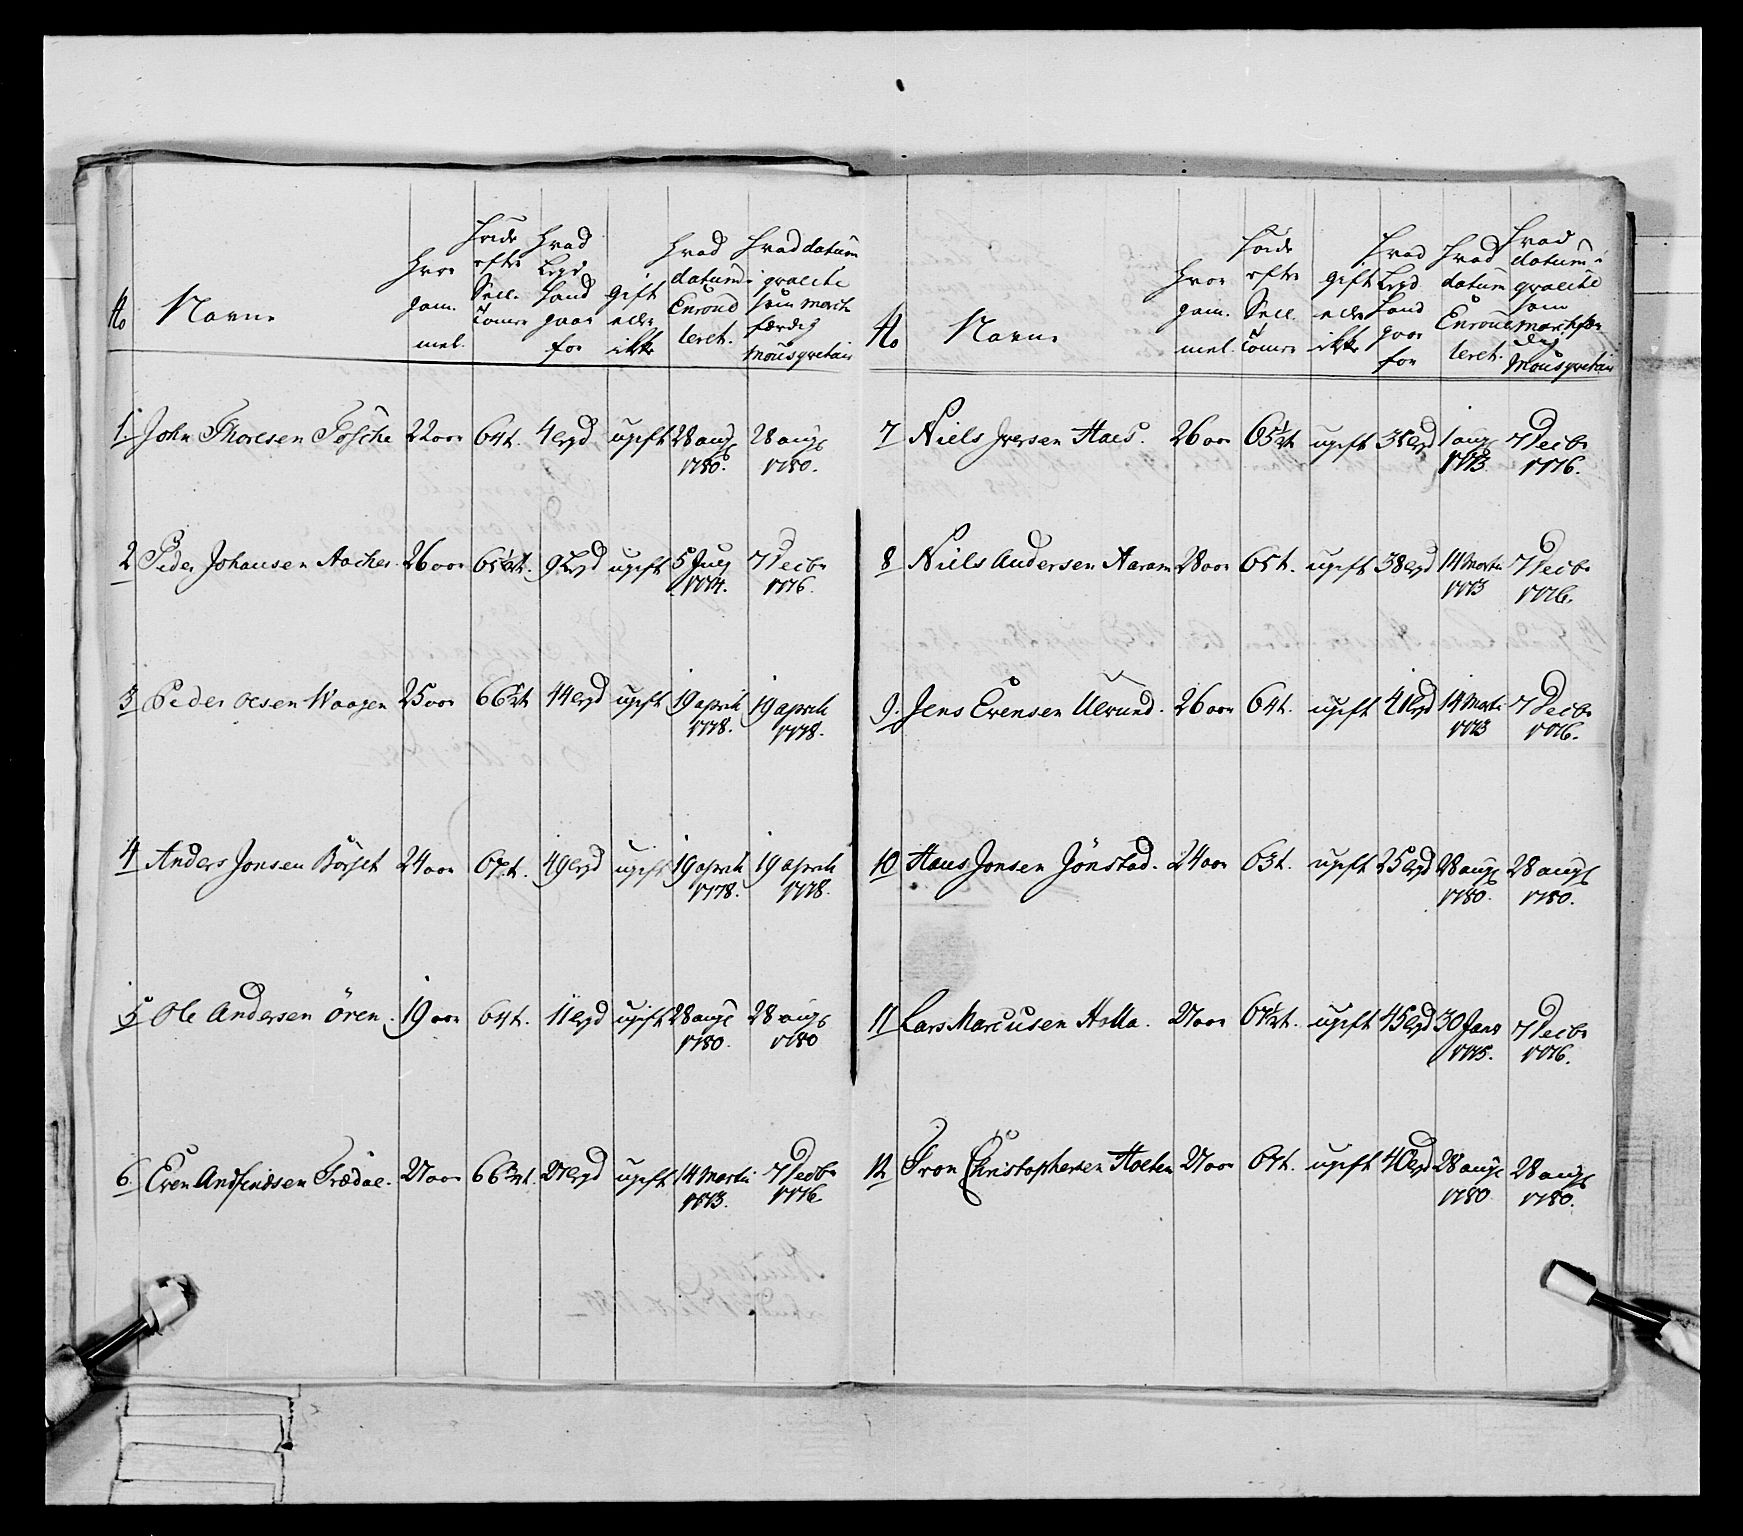 No Navne
Hvor gam. mel.
Höide efter Sell. Tomr.
Hvad Legd Hand gaar for
gift eller ikke
Hvad datum Enroul leret.
Hvad datum i qvalite som march færdig Mousqvetair
1. John Thoresen 22 aar 64 t. 4 legd ugift 28 aug 1780. 28 aug 1780.
2 Peder Johansen Aacher. 26 aar 9 Legd ugift 5 July 1774. 7 Decbr 1776.
3 Peder Olsen Waagen 25 aar 44 legd ugift 19 april 1778. 19 april 1778.
4 Anders Jonsen 24 aar 49 legd ugift 19 april 1778. 19 april 1778.
5 Ole Andersen Ören. 19 aar 64 t. 11 legd ugift 28 aug 1780. 28 aug 1780
6. Even Andfindsen Trædal. 27 aar 27 legd ugift 14 Marti 1773. 7 Decbr 1776
No Navne
Hvor gam. mel.
Höide efter Sell. Tomr.
gift eller ikke
Hvad Legd Hand gaar for
Hvad datum Enroul leret.
Hvad datum i qvalite som march fær dig Mousqvetair
7 Niels Iversen 26 aar 65½ t. ugift 35 legd 1 aug 1773. 7 Decbr 1776.
8 Niels Andersen Aaram 28 aar 65 t. ugift 38 legd 14 Marti 1773 7 Decbr 1776.
9. Jens Evensen Ulvund. 26 aar 64 t. ugift 41 legd 14 Marti 1773 7 Decbr 1776.
10 Hans Jonsen Jönstad. 24 aar 63 t. ugift 25 legd 28 aug 1780. 28 aug 1780.
11 Lars Marcusen Holla. 27 aar ugift 45 legd 30 Janv 1775. 7 Decbr 1776.
12 Tron Christophersen Holten 27 aar ugift 40 legd 28 aug 1780 28 aug 1780.